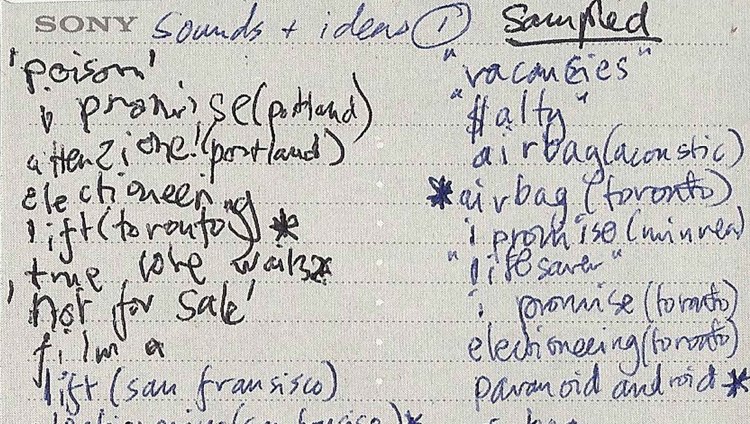 SONY sounds + ideas ① Sampled
'poison'
i promise (portland)
attenzione! (portland)
electioneering
lift (toronto) *
true love waits *
'not for sale'
film a
lift (san fransisco)
"vacancies"
"$alty"
airbag (acoustic)
*airbag (toronto)
i promise (
"lifesaver"
i promise (toronto)
electioneering (toronto)
paranoid android *